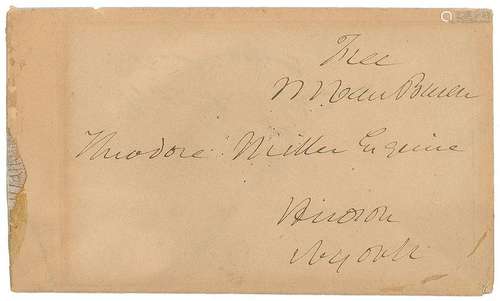 Free
MVan Buren
Theodore Miller Esquire
Hudson
NYork